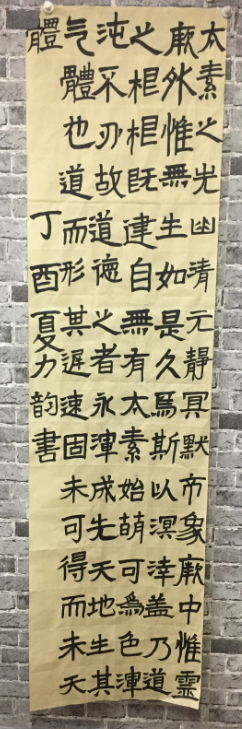 太素之先幽清元靜冥默帝象厥中惟靈
厥外惟無生如是久焉斯以溟涬蓋乃道
之相相既建自無有太素始萌可為色渾
沌不故道德之者永渾成先天地生其
气體也道而形其遲速固未可得而未天
體
丁酉夏力韵書